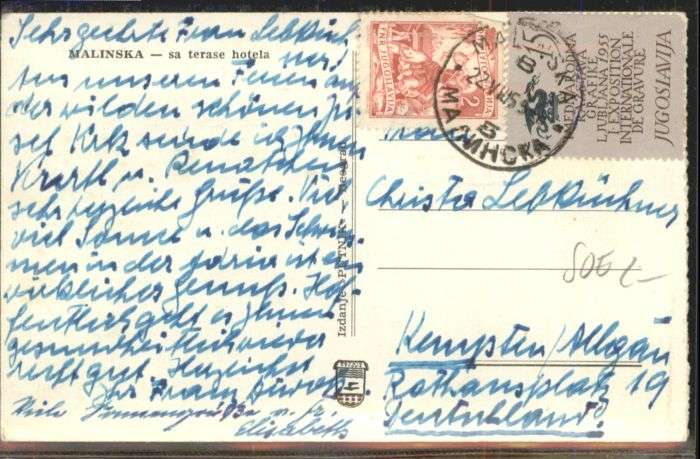 Sehr geehrte Frau Lebküchner
MALINSKA — sa terase hotela
Aus unseren Ferien auf
der wilden schönen In
sel Krk sende ich Ihnen
u. Renatchen
sehr herzliche Grüße. Viel
viel Sonne u. das Schwim
men in der Adria ist ein
wirklicher Genuß. Hof
fentlich geht es Ihnen
gesundheitlich wieder
recht gut. Herzlichst
Ihr Franz
Viele
Elisabeth
Izdanje PUTNIK — Beograd
JUGOSLAVIJA
2
МАЛИНСКА
B
GRAFIKE
LJUBLJANA 1955
I EXPOSITION
INTERNATIONALE
DE GRAVURE
JUGOSLAVIJA
Frau
Christa Lebküchner
80E
Kempten/Allgäu
Rathausplatz 19
Deutschland